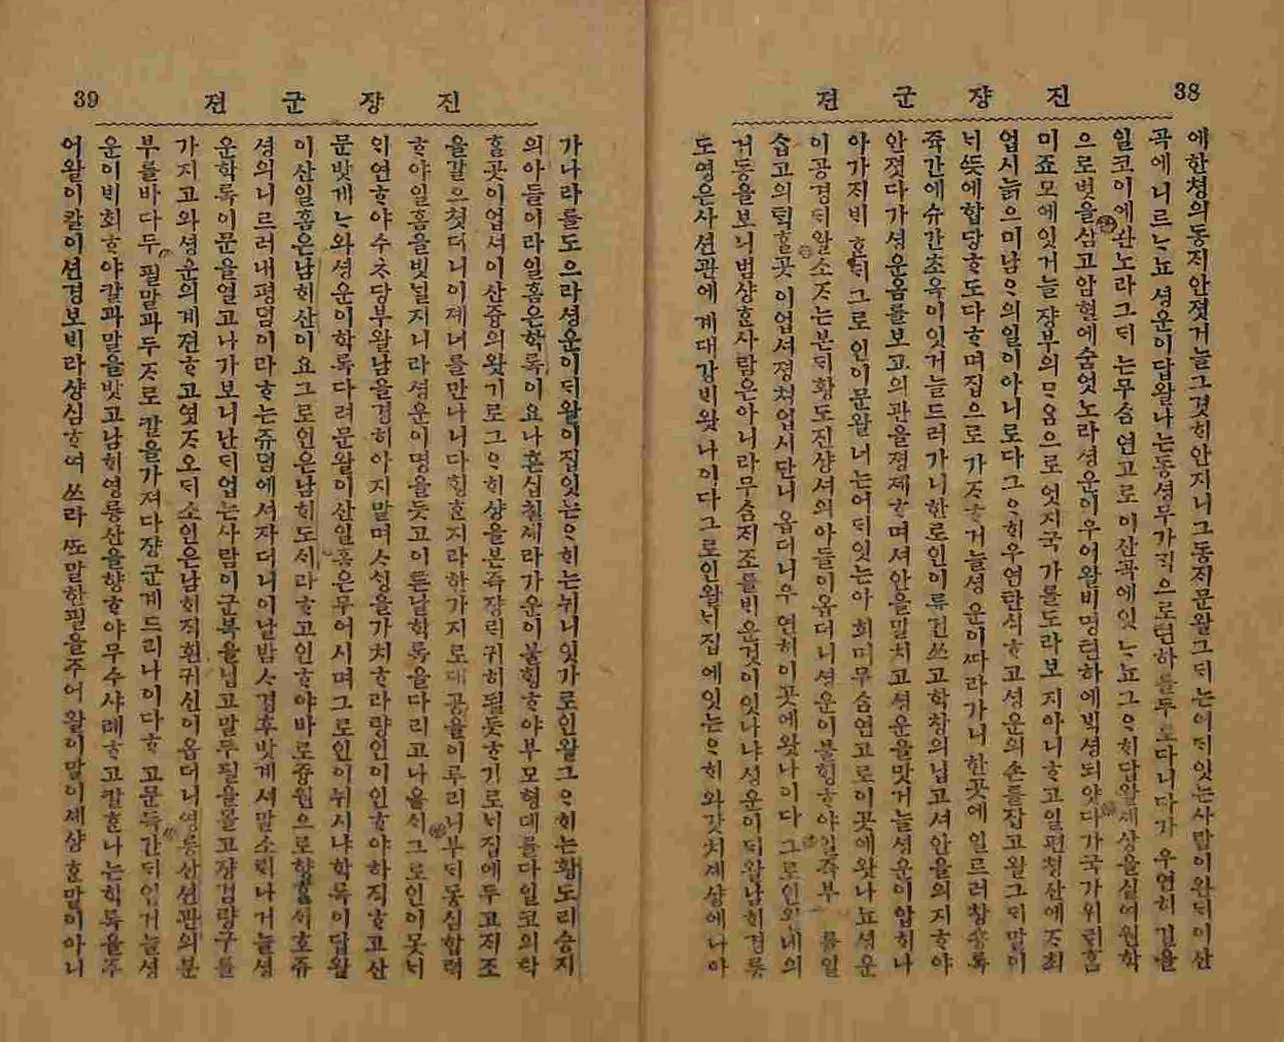 38
진쟝군젼
에한쳥의동지안졋거늘그것ᄒᆡ안지니그동지문왈그ᄃᆡ는어ᄃᆡ잇는사람이완ᄃᆡ이산
곡에니르ᄂᆞ뇨셩운이답왈나는동셩무가ᄀᆡ으로텬하를두로다니다가우연히길을
일코이에산노라그ᄃᆡ는무슴연고로이산곡에잇ᄂᆞ뇨그ᄋᆞᄒᆡ답왈세상을실여원학
으로벗을삼고암혈에숨엇노라셩운이우어왈비명텬하에빅셩되얏다가국가위ᄐᆡ홈
미죠모에잇거늘쟝부의ᄆᆞᄋᆞᆷ으로엇지국가를도라보지아니ᄒᆞ고일편쳥산에ᄌᆞ최
업시늙으미남ᄋᆞ의일이아니로다그ᄋᆞᄒᆡ우연탄식ᄒᆞ고셩운의손를잡고왈그ᄃᆡ말이
ᄂᆡ뜻에합당ᄒᆞ도다ᄒᆞ며집으로가ᄌᆞᄒᆞ거늘셩운이ᄯᅡ라가니한곳에일르러창송록
쥭간에슈간초옥이잇거늘드러가니한로인이류건쓰고학창의닙고셔안을의지ᄒᆞ야
안졋다가셩운옴를보고의관을졍졔ᄒᆞ며셔안을밀치고셩운을맛거늘셩운이압ᄒᆡ나
아가지비ᄒᆞᆫᄃᆡ그로인이문왈너는어ᄃᆡ잇는아ᄒᆡ며무슴연고로이곳에왓나뇨셩운
이공경ᄃᆡ왈소ᄌᆞ는본ᄃᆡ황도진상셔의아들이옵더니셩운이불힝ᄒᆞ야일즉부 를일
습고의ᄐᆡᆨᄒᆞᆯ곳이업셔졍쳐업시단니옵더니우연히이곳에왓나이다그로인왈네의
거동을보니범샹ᄒᆞᆫ사람은아니라무슴ᄌᆡ조를ᄇᆡ운것이잇나냐셩운이ᄃᆡ왈남ᄒᆡ경룡
도영은사션관에게대강ᄇᆡ왓나이다그로인왈ᄂᆡ집에잇는ᄋᆞᄒᆡ와갓치세상에나아
39
진쟝군젼
가나라를도으라셩운이ᄃᆡ왈이집잇는ᄋᆞᄒᆡ는뉘니잇가로인왈그ᄋᆞᄒᆡ는황도리승지
의아들이라일홈은학록이요나흔십칠세라가운이불힝ᄒᆞ야부모형뎨를다일코의학
ᄒᆞᆯ곳이업셔이산즁의왓기로그ᄋᆞᄒᆡ상을본즉장ᄅᆡ귀히될듯ᄒᆞ기로ᄂᆡ집에두고ᄌᆡ조
을갈으쳣더니이졔너를만나니다힝ᄒᆞᆫ지라한가지로대공을이루리니부ᄃᆡ동심합력
ᄒᆞ야일홈을빗닐지니라셩운이명을듯고이튼날학록을다리고나올ᄉᆡ그로인이못ᄂᆡ
익연ᄒᆞ야수ᄎᆞ당부왈남을경히아지말며ᄉᆞ셩을가치ᄒᆞ라량인이인ᄒᆞ야하직ᄒᆞ고산
문밧게ᄂᆞ와셩운이학록다려문왈이산일홈은무어시며그로인이뉘시냐학록이답왈
이산일홈은남ᄒᆡ산이요그로인은남ᄒᆡ도세라ᄒᆞ고인ᄒᆞ야바로즁원으로향ᄒᆞᆯᄉᆡ호쥬
셩의니르러내평뎜이라ᄒᆞ는쥬뎜에셔자더니이날밤ᄉᆞ경후밧게셔말소ᄅᆡ나거늘셩
운학록이문을열고나가보니난ᄃᆡ업는사람이군복을닙고말두필을몰고장검량구를
가지고와셩운의게젼ᄒᆞ고엿ᄌᆞ오ᄃᆡ소인은남ᄒᆡ직흰귀신이옵더니영릉산션관의분
부를바다두필말과두ᄌᆞ로칼을가져다쟝군게드리나이다ᄒᆞ고문득간ᄃᆡ업거늘셩
운이ᄇᆡ회ᄒᆞ야칼과말을밧고남ᄒᆡ영릉산을향ᄒᆞ야무수샤례ᄒᆞ고칼ᄒᆞ나는학록을주
어왈이칼이션경보비라샹심ᄒᆞ여쓰라ᄯᅩ말한필을주어왈이말이세상ᄒᆞᆫ말이아니